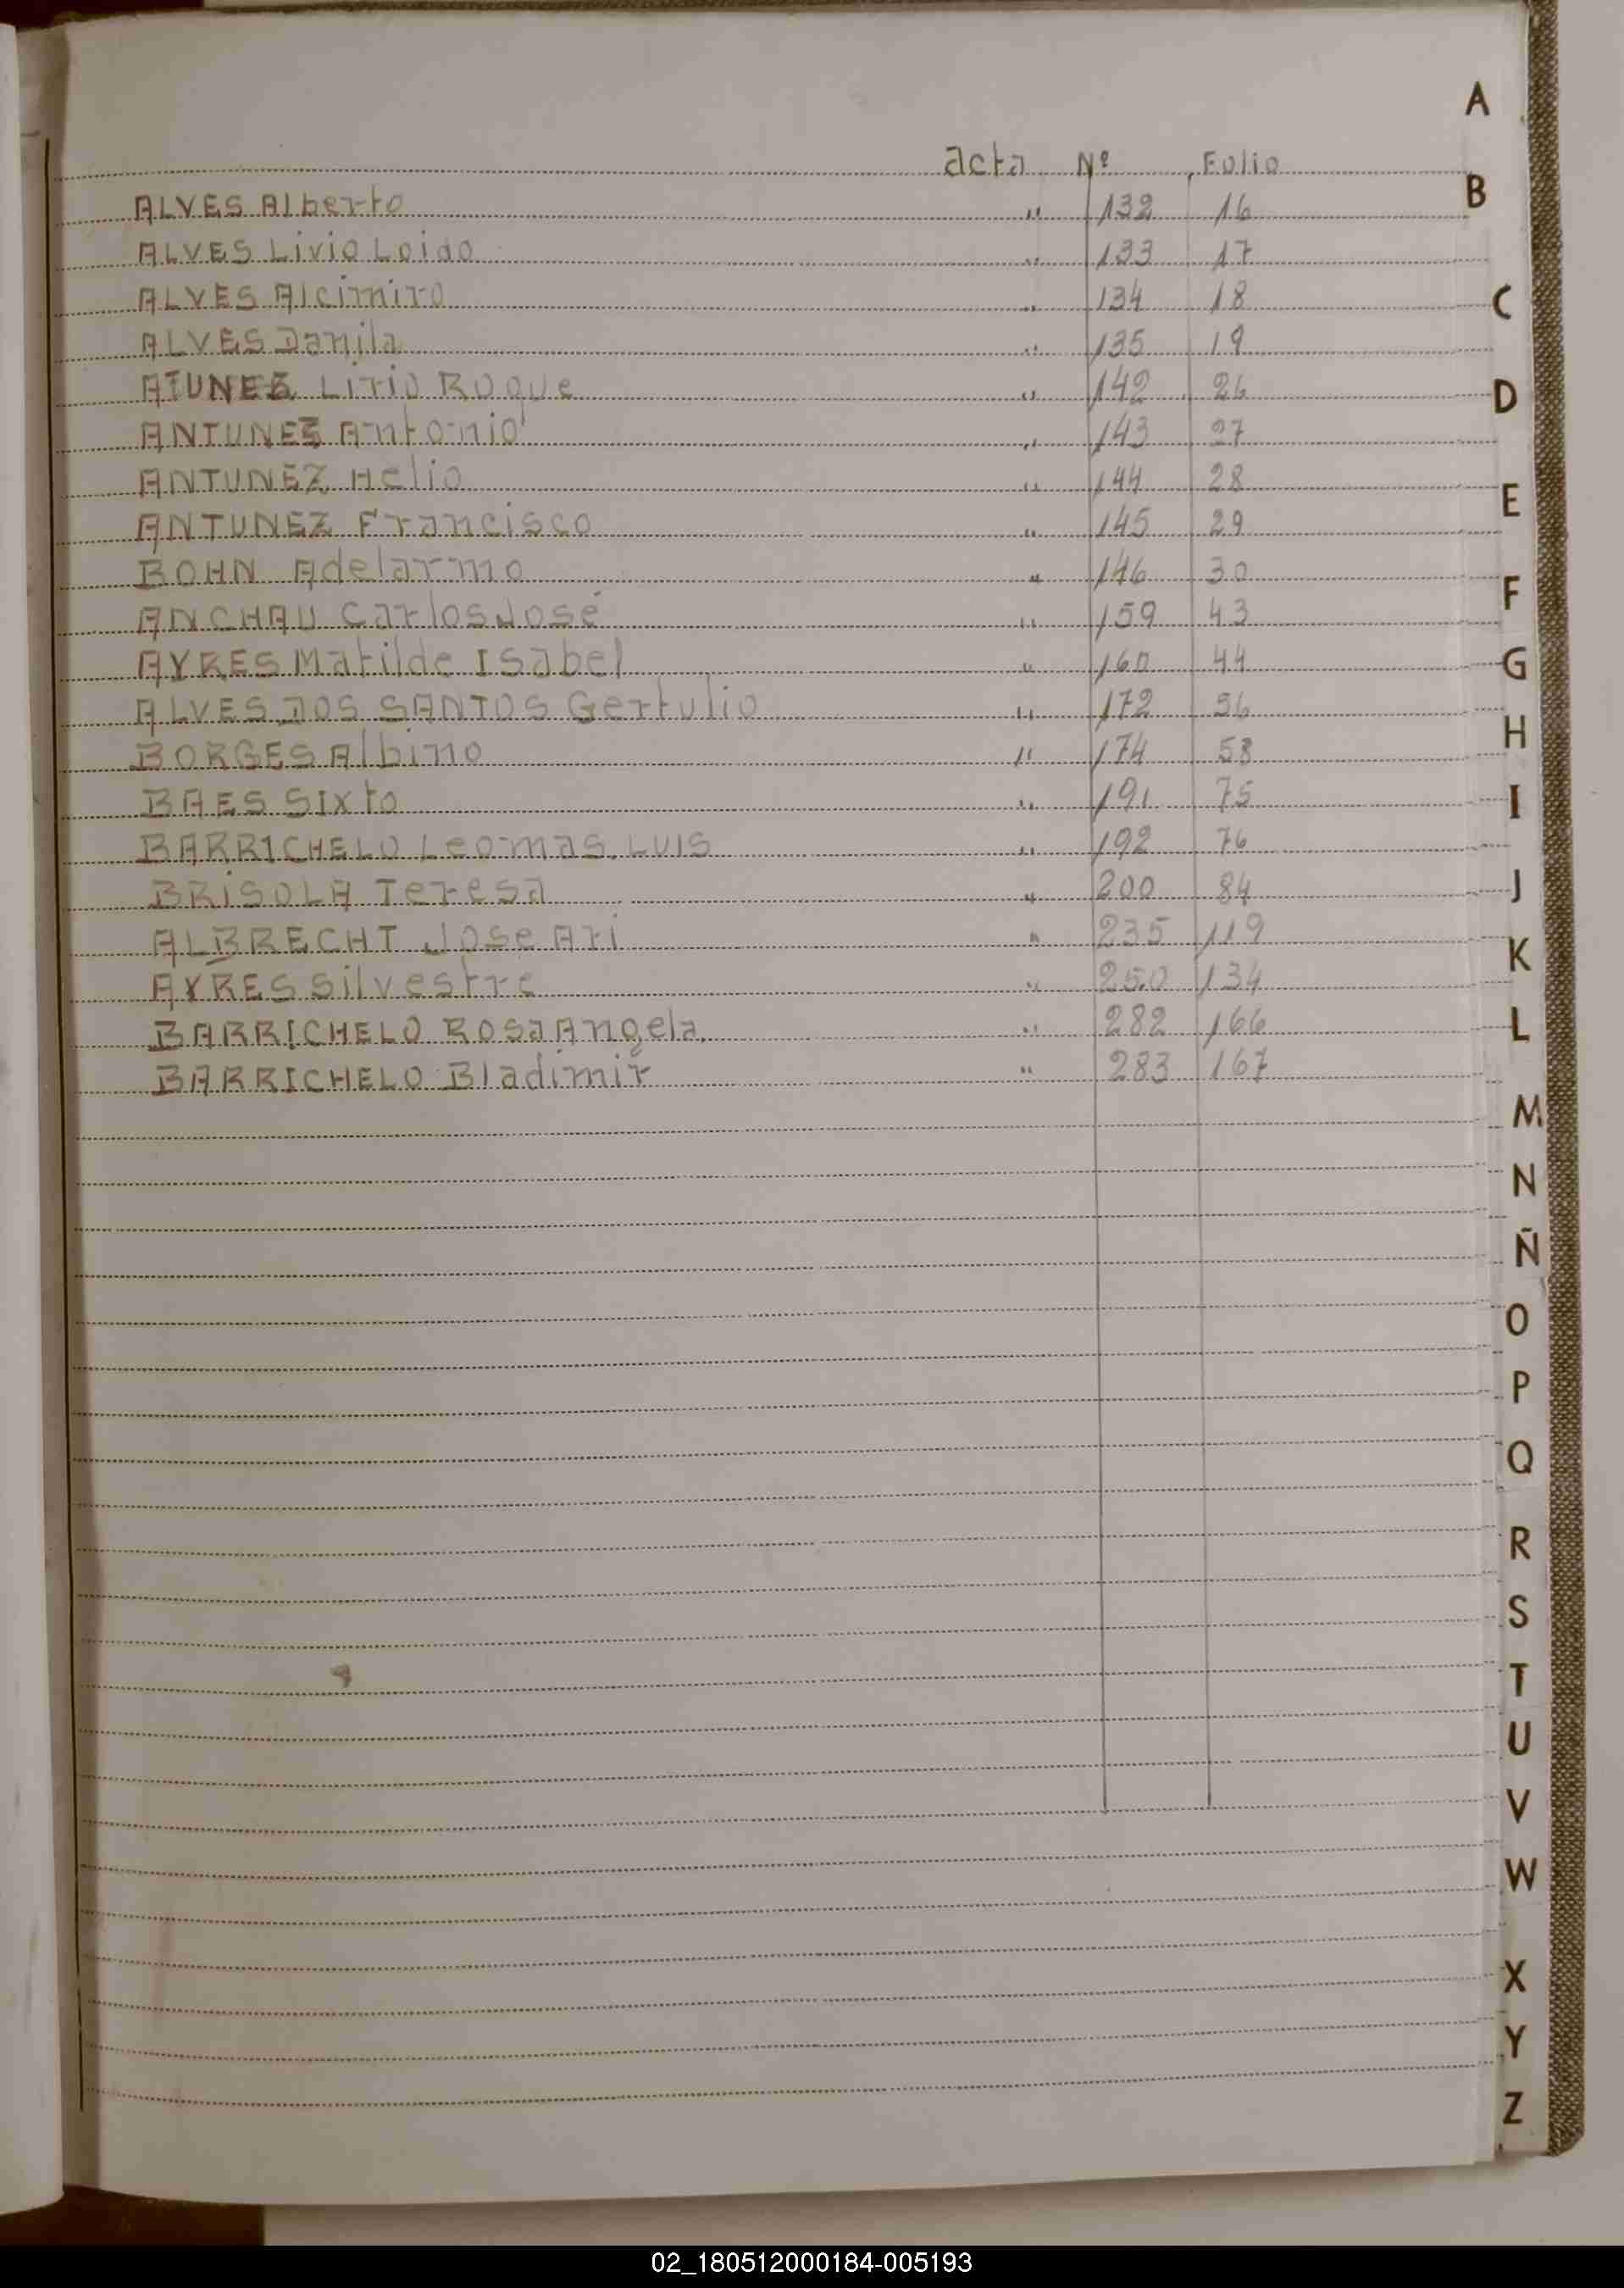 acta Nº Folio
ALVES Alberto " 132 16
ALVES Livio Loido " 133 17
ALVES Alcimiro " 134 18
ALVES Danila " 135 19
ATUNES Lirio Roque " 142 26
ANTUNEZ Antonio " 143 27
ANTUNEZ Helio " 144 28
ANTUNEZ Francisco " 145 29
BOHN Adelarmo " 146 30
ANCHAU Carlos José " 159 43
AYRES Matilde Isabel " 160 44
ALVES DOS SANTOS Gertulio " 172 56
BORGES Albino " 174 58
BAES Sixto " 191 75
BARRICHELO Leomas. LUIS " 192 76
BRISOLA Teresa " 200 84
ALBRECHT Jose Ari " 235 119
AYRES Silvestre " 250 134
BARRICHELO Rosa Angela. " 282 166
BARRICHELO Bladimir " 283 167
A
B
C
D
E
F
G
H
I
J
K
L
M
N
Ñ
O
P
Q
R
S
T
U
V
W
X
Y
Z
02_180512000184-005193